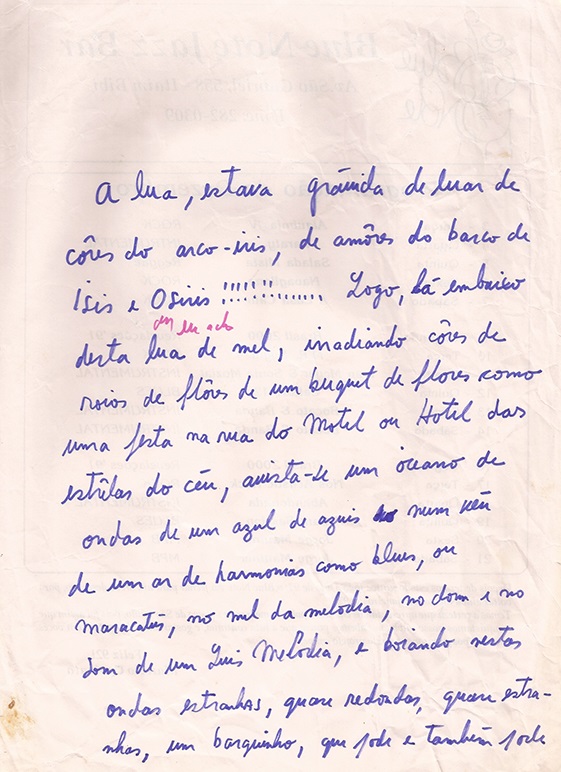 A lua, estava grávida de luar de
côres do arco-iris, de amôres do barco de
Ísis e Osiris !!!!!!............. Logo, lá embaixo
desta lua de mel, irradiando côres de
raios de flôres de um buquet de flores como
uma festa na rua do Motel ou Hotel das
estrêlas do céu, avista-se um oceano de
ondas de um azul de azuis num véu
de um ar de harmonias como blues, ou
maracatús, no mel da melodia, no dom e no
som de um Luis Melodia, e boiando nestas
ondas estranhas, quase redondas, quase estra-
nhas, um barquinho, que pode e também pode